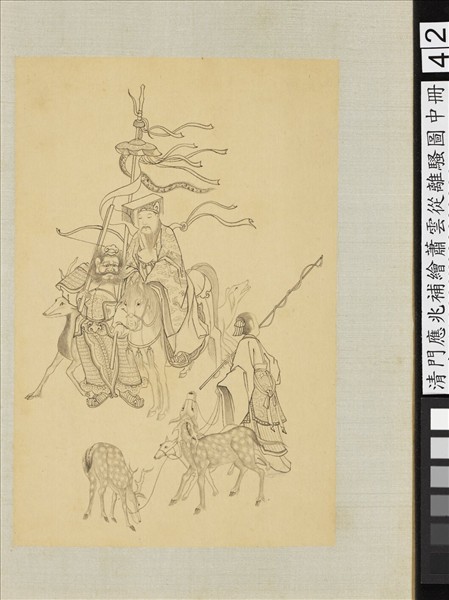 清門應兆補繪蕭雲從離騷圖中冊
42